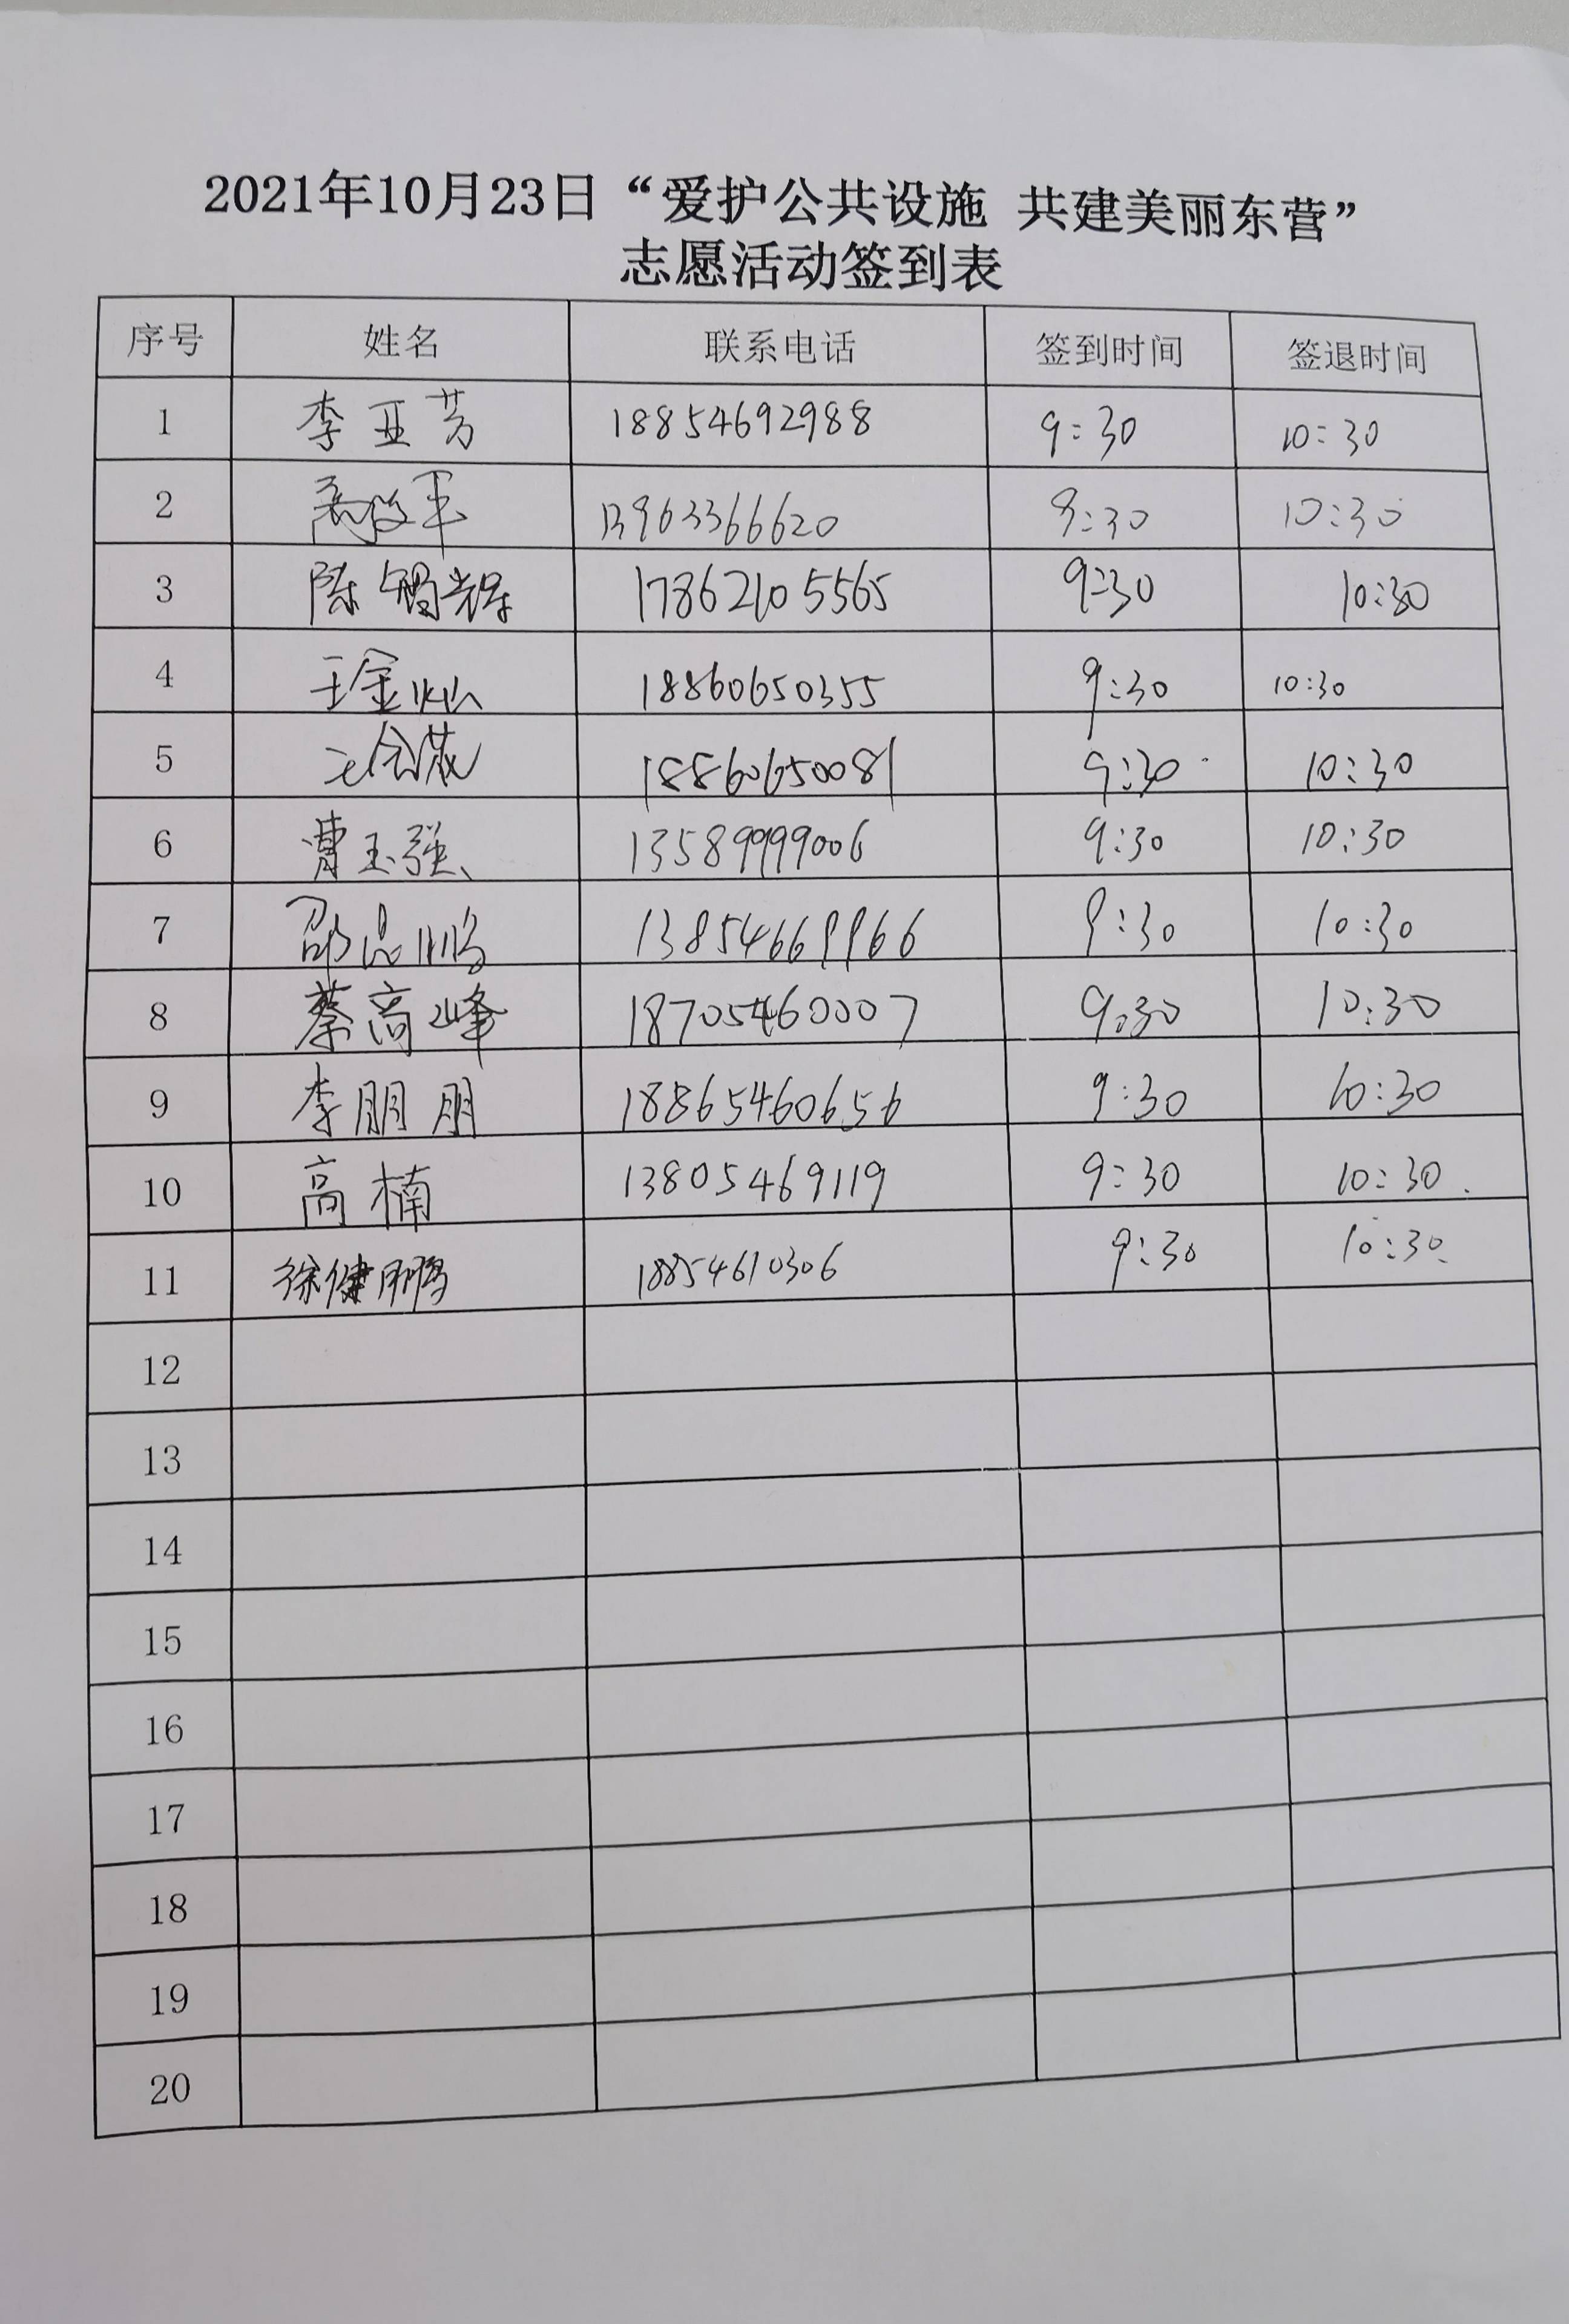 2021年10月23日“爱护公共设施 共建美丽东营”
志愿活动签到表
序号 姓名 联系电话 签到时间 签退时间
1 李亚芳 18854692988 9:30 10:30
2 13963366620 9:30 10:30
3 陈锡辉 17862105565 9:30 10:30
4 王金灿 18860650355 9:30 10:30
5 18860650081 9:30 10:30
6 曹玉强 13589999006 9:30 10:30
7 邵志鹏 13854669966 9:30 10:30
8 蔡高峰 18705460007 9:30 10:30
9 李朋朋 18865460656 9:30 10:30
10 高楠 13805469119 9:30 10:30
11 徐健鹏 18854610306 9:30 10:30
12
13
14
15
16
17
18
19
20